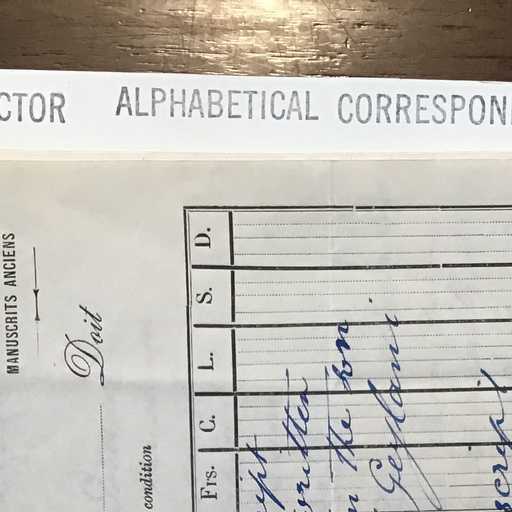 MANUSCRITS ANCIENS
Doit
condition
Frs. C. L. S. D.
ript
written
n the son
Geylani
script
CTOR ALPHABETICAL CORRESPON